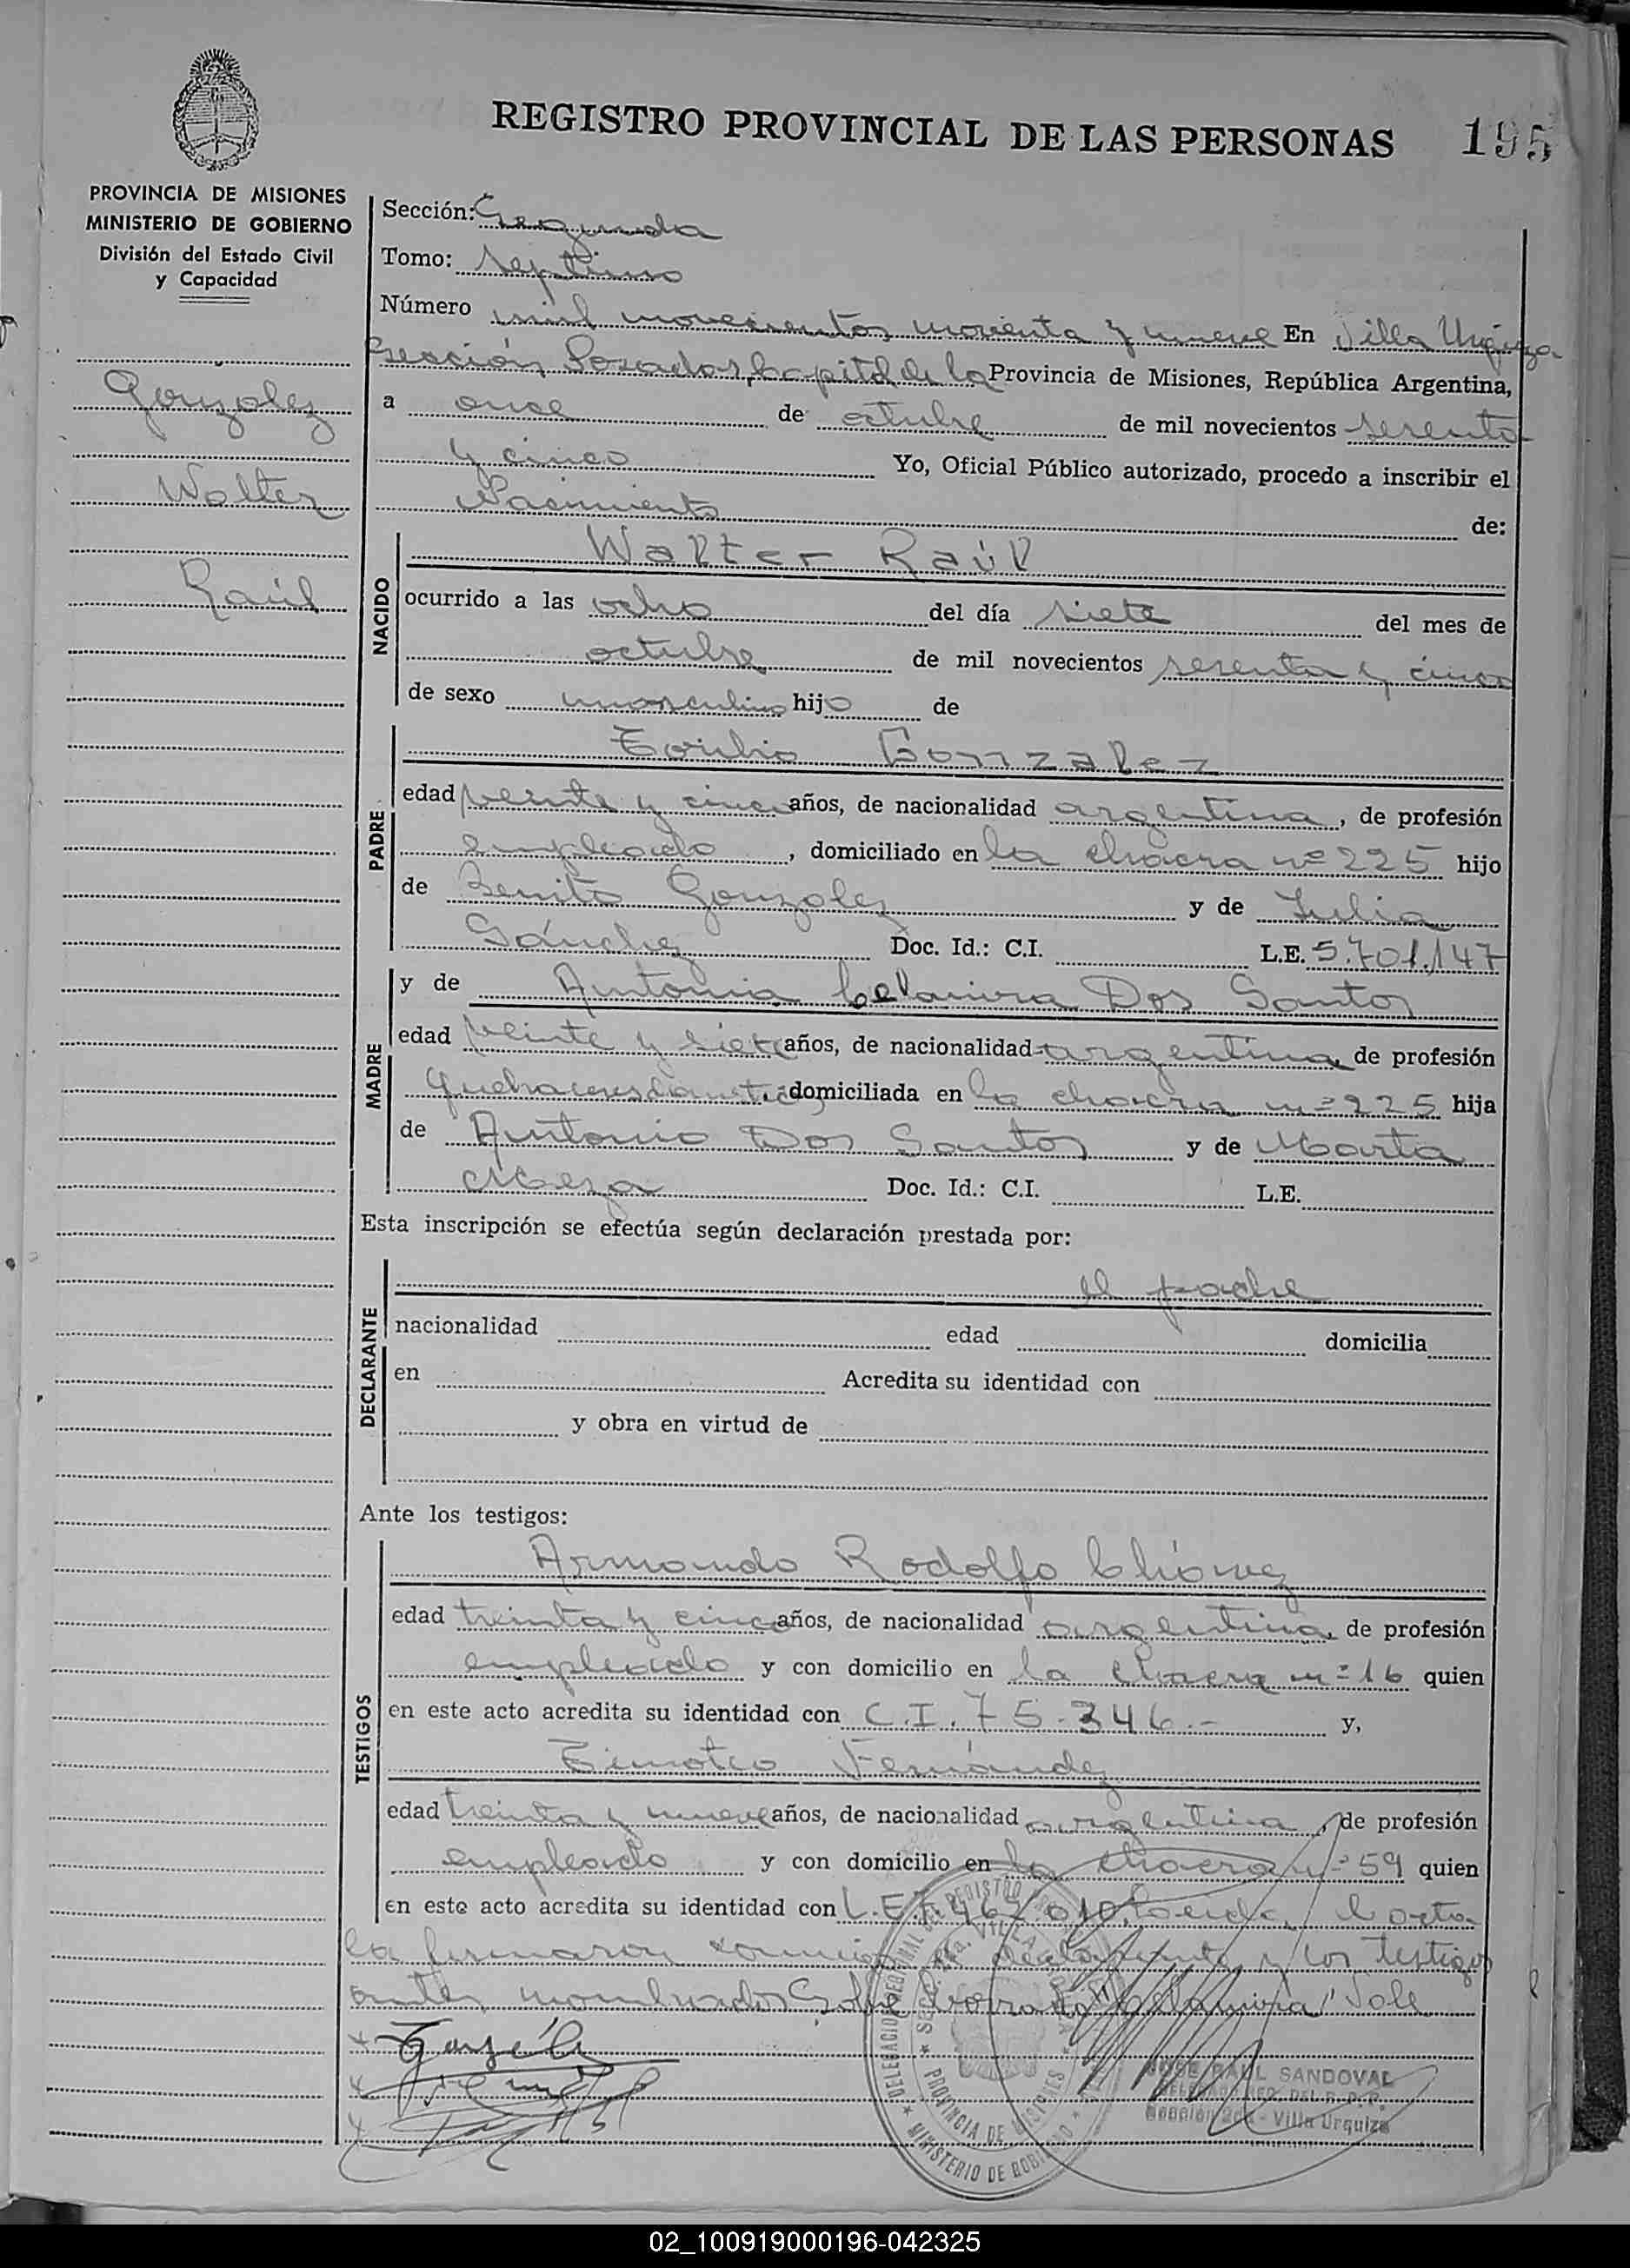 REGISTRO PROVINCIAL DE LAS PERSONAS 195
PROVINCIA DE MISIONES
MINISTERIO DE GOBIERNO
División del Estado Civil
y Capacidad
Gonzalez
Walter
Raúl
Sección: Segunda
Tomo: septimo
Número mil novecientos noventa y nueve En Villa Urquiza
sección Posadas, Capital de la Provincia de Misiones, República Argentina,
a once de octubre de mil novecientos sesenta
y cinco Yo, Oficial Público autorizado, procedo a inscribir el
Nacimiento de:
NACIDO
Walter Raúl
ocurrido a las ocho del día siete del mes de
octubre de mil novecientos sesenta y cinco
de sexo masculino hijo de
PADRE
Gonzalez
edad veinte y cinco años, de nacionalidad argentina, de profesión
empleado, domiciliado en la chacra nº 225 hijo
de Benito Gonzalez y de Julia
Sánchez Doc. Id.: C.I. L.E. 5.701.147
MADRE
y de Antonia Celanira Dos Santos
edad veinte y siete años, de nacionalidad argentina, de profesión
Quehaceres domesticos domiciliada en la chacra nº 225 hija
de Antonio Dos Santos y de Marta
Meza Doc. Id.: C.I. L.E.
Esta inscripción se efectúa según declaración prestada por:
DECLARANTE
el padre
nacionalidad edad domicilia
en Acredita su identidad con
y obra en virtud de
Ante los testigos:
TESTIGOS
Armando Rodolfo Chávez
edad treinta y cinco años, de nacionalidad argentina, de profesión
empleado y con domicilio en la chacra nº 16 quien
en este acto acredita su identidad con C.I. 75.346.- y,
Timoteo Fernández
edad treinta y nueve años, de nacionalidad argentina, de profesión
empleado y con domicilio en la chacra nº 59 quien
en este acto acredita su identidad con L.E. 7.467.010. Leida el acta
la firmaron conmigo el declarante y los testigos
antes nombrados Sobre borrado "Celanira" Vale
JOSE RAUL SANDOVAL
Sección 2da - Villa Urquiza
PROVINCIA DE MISIONES
MINISTERIO DE GOBIERNO
02_100919000196-042325